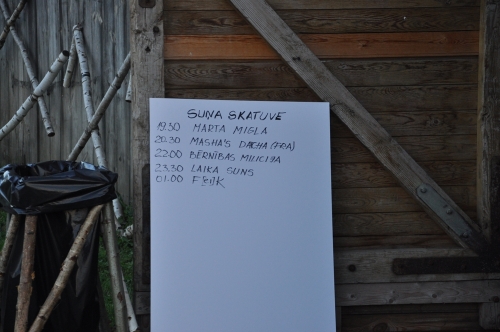 SUŅA SKATUVE
19.30 MARTA MIGLA
20.30 MASHA'S DACHA (FRA)
22.00 BĒRNĪBAS MILICIJA
23.30 LAIKA SUNS
01.00